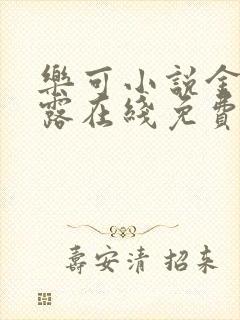 樂可小說金
露在綫免費
壽安清 招来